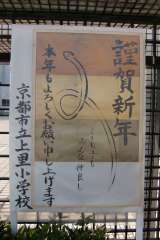 謹賀新年
本年もよろしくお願い申し上げます
京都市立上里小学校